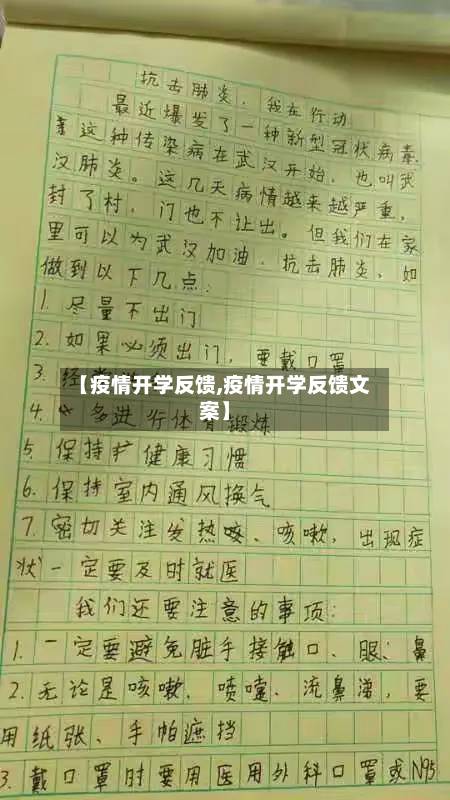 抗击肺炎，我在行动
最近爆发了一种新型冠状病毒，
这种传染病在武汉开始，也叫武
汉肺炎。这几天病情越来越严重，
封了村，门也不让出。但我们在家
里可以为武汉加油，抗击肺炎，如
做到以下几点：
1. 尽量不出门
2. 如果必须出门，要戴口罩
3. 经
【疫情开学反馈,疫情开学反馈文
案】
4. 多进行体育锻炼
5. 保持健康习惯
6. 保持室内通风换气
7. 密切关注发热、咳嗽，出现症
状一定要及时就医
我们还要注意的事项：
1. 一定要避免脏手接触口、眼、鼻
2. 无论是咳嗽、喷嚏、流鼻涕，要
用纸张、手帕遮挡
3. 戴口罩时要用医用外科口罩或N95